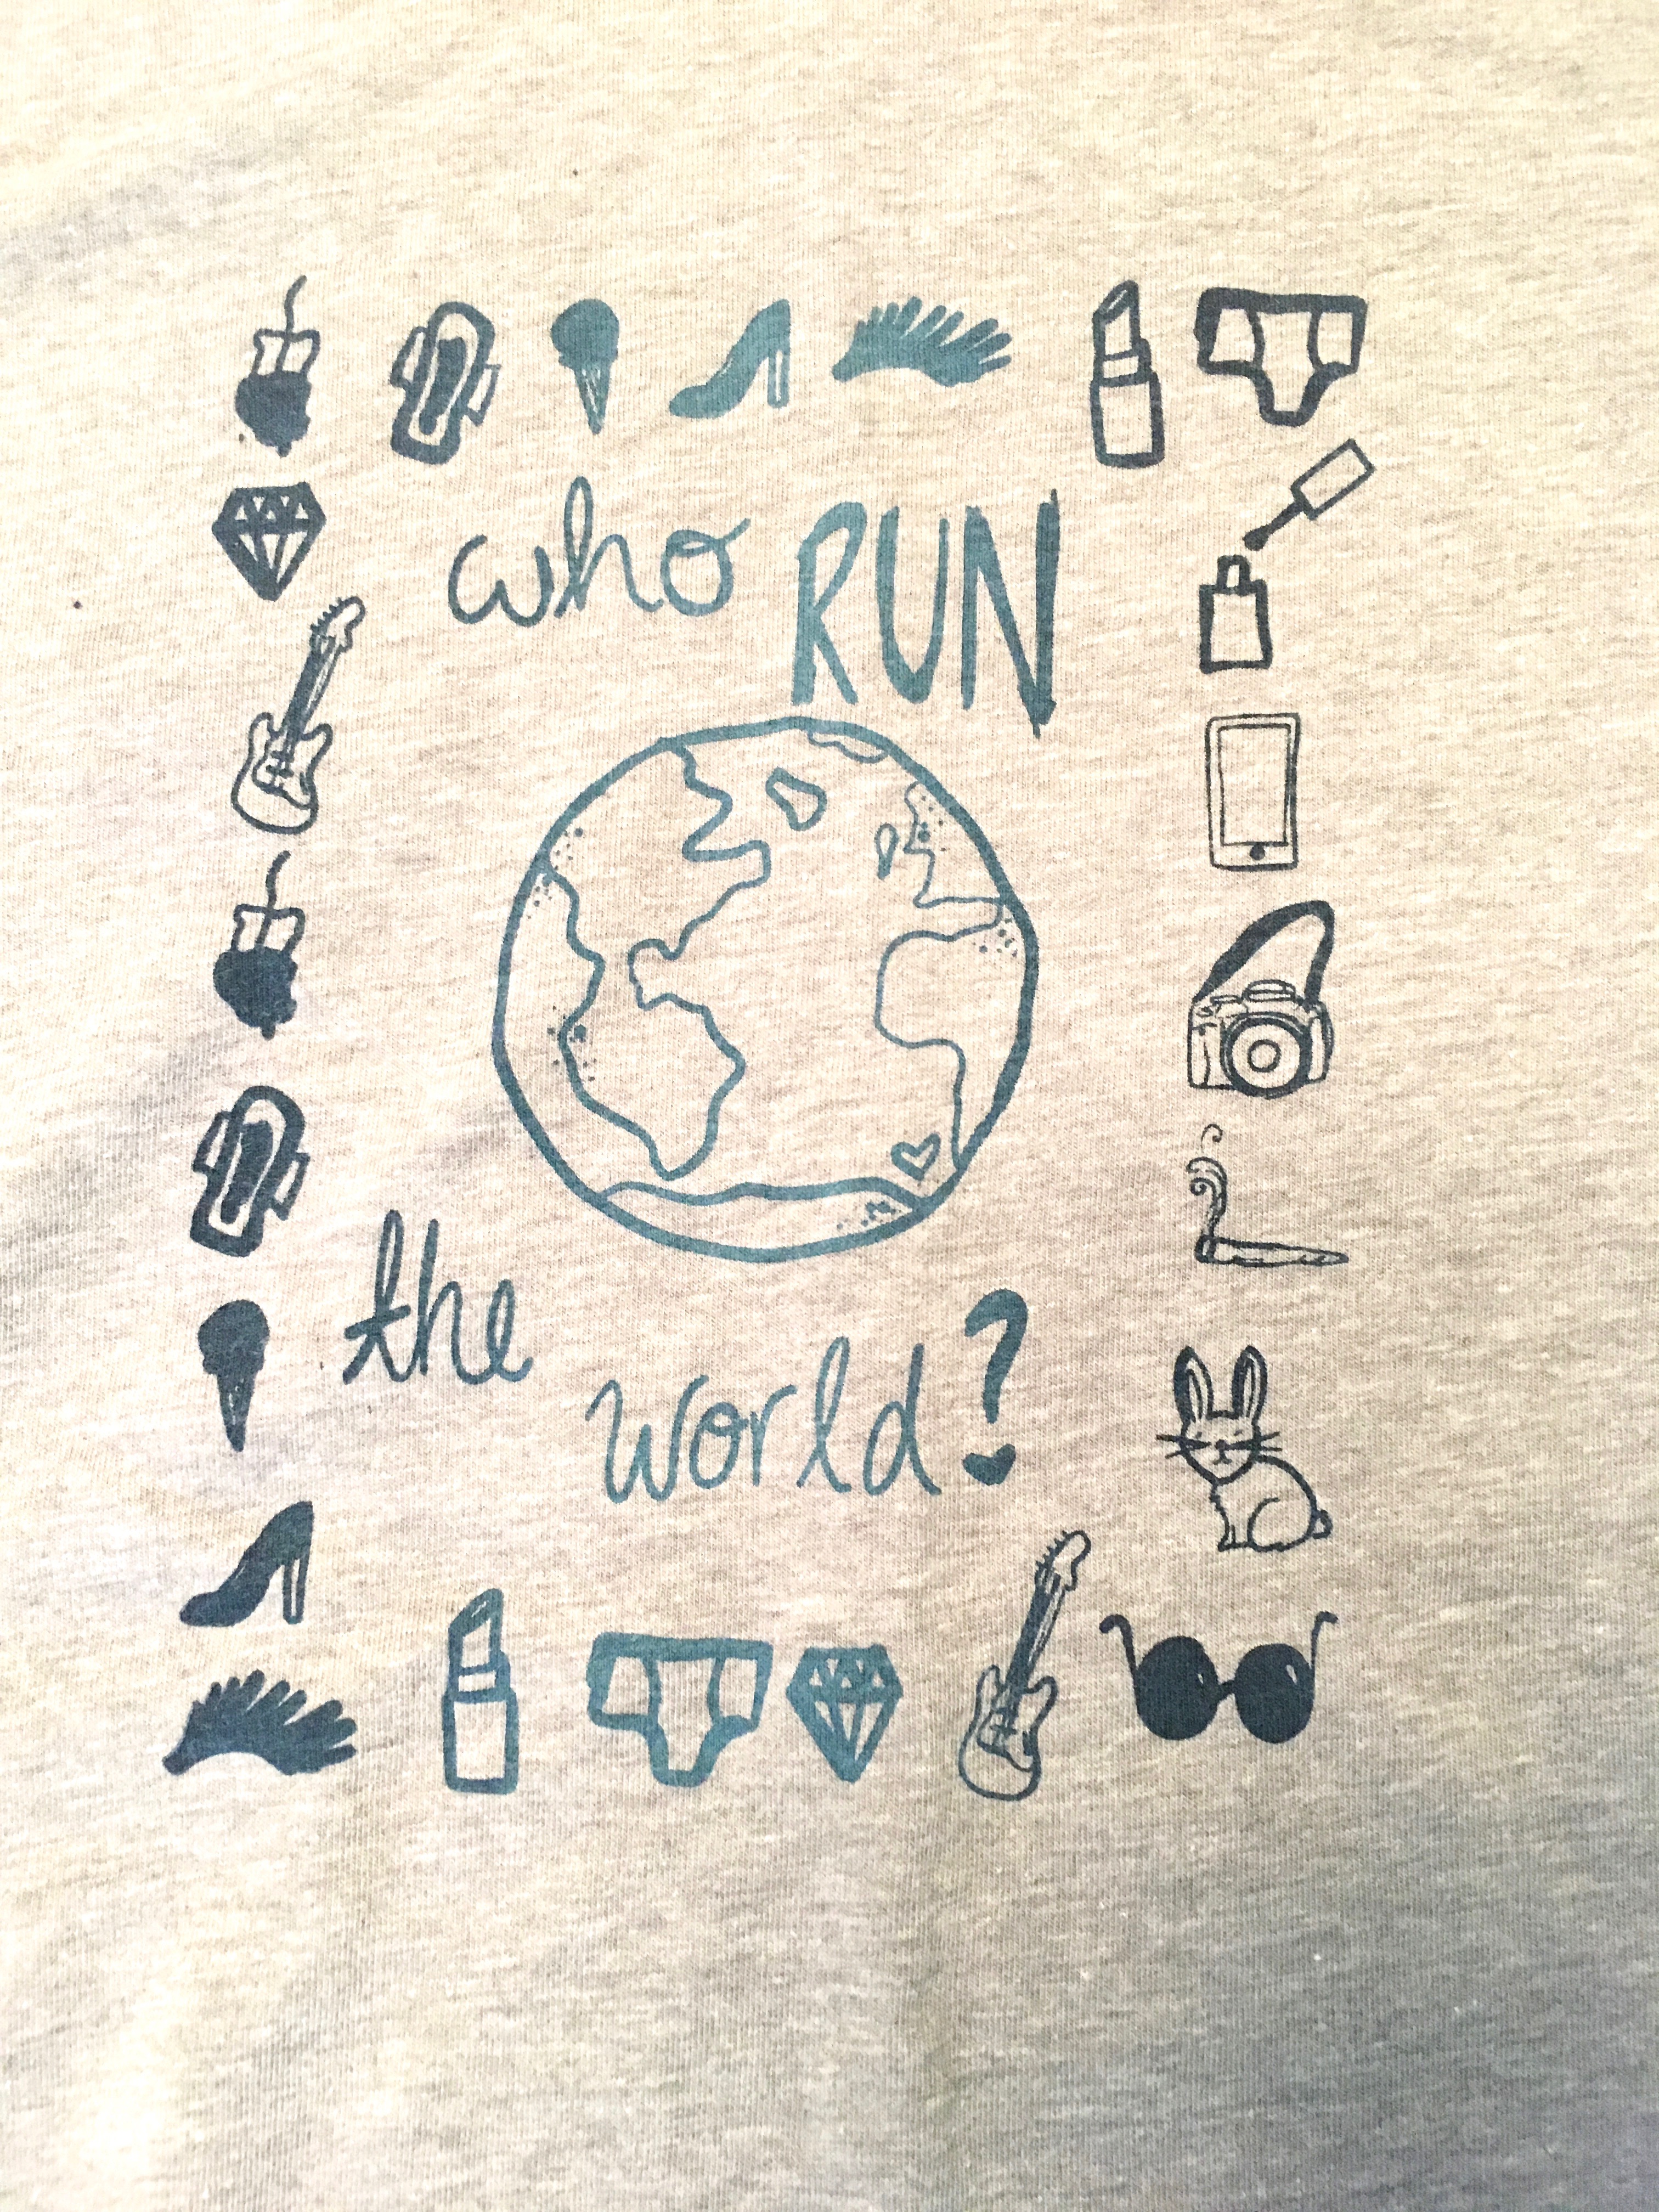 who RUN
the
world?